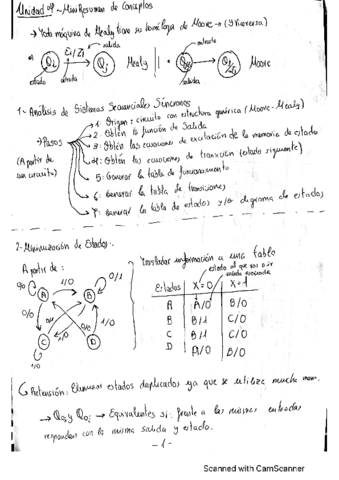 Unidad 08 ~ Mini Resumen de Conceptos
→ Toda máquina de Mealy tiene su homóloga de Moore → (y viceversa)
salida
Ei/Zi
Qi
Qj
Mealy
estado
entrada
entrada
Moore
salida
1- Análisis de Sistemas Secuenciales Síncronos
→ Pasos
(A partir de un circuito)
1: Origen: circuito con estructura genérica (Moore-Mealy)
2: Obtén la función de Salida
3: Obtén las ecuaciones de excitación de la memoria de estado
4: Obtén las ecuaciones de transición (estado siguiente)
5: Generar la tabla de funcionamiento
6: Generar la tabla de transiciones
7: General la tabla de estados y/o diagrama de estados
2- Minimización de Estados.-
A partir de:
Trasladar información a una tabla
estado al que vas a ir
salida
Estados X=0 X=1
A A/0 B/0
B B/1 C/0
C B/1 C/0
D A/0 B/0
0/0
1/0
0/1
A
B
0/0
1/0
C
D
1/0
Pretensión: Eliminar estados duplicados ya que se utiliza mucha mem.
→ Qi y Qj → Equivalentes si: frente a las mismas entradas
responden con la misma salida y estado.
-1-
Scanned with CamScanner